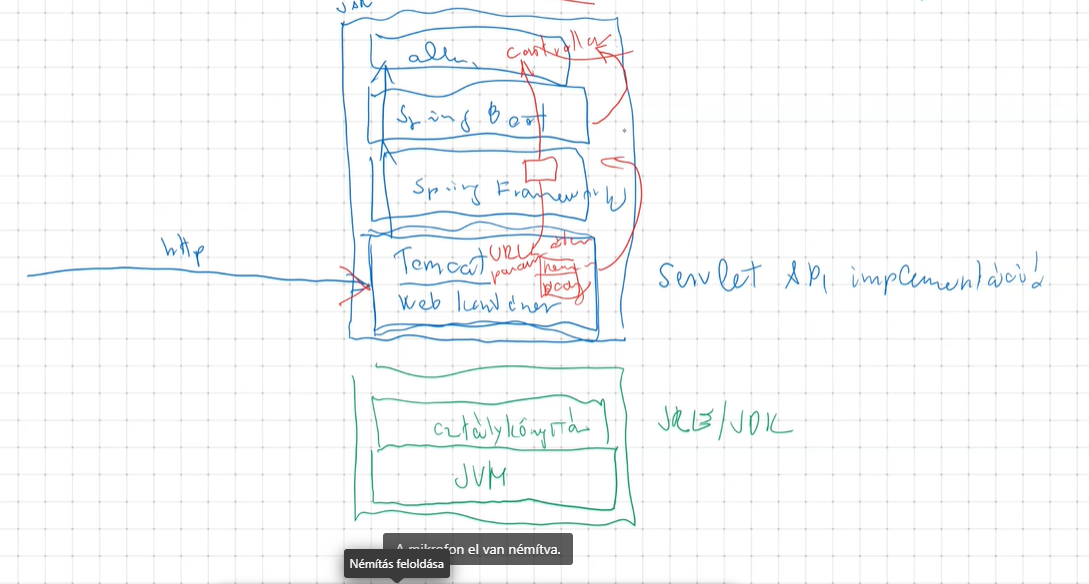 JAR
alk.
Controller
Spring Boot
Spring Framework
http
Tomcat
URL
param
head
body
Web konténer
Servlet API implementáció
osztálykönyvtár
JRE/JDK
JVM
A mikrofon el van némítva.
Némítás feloldása